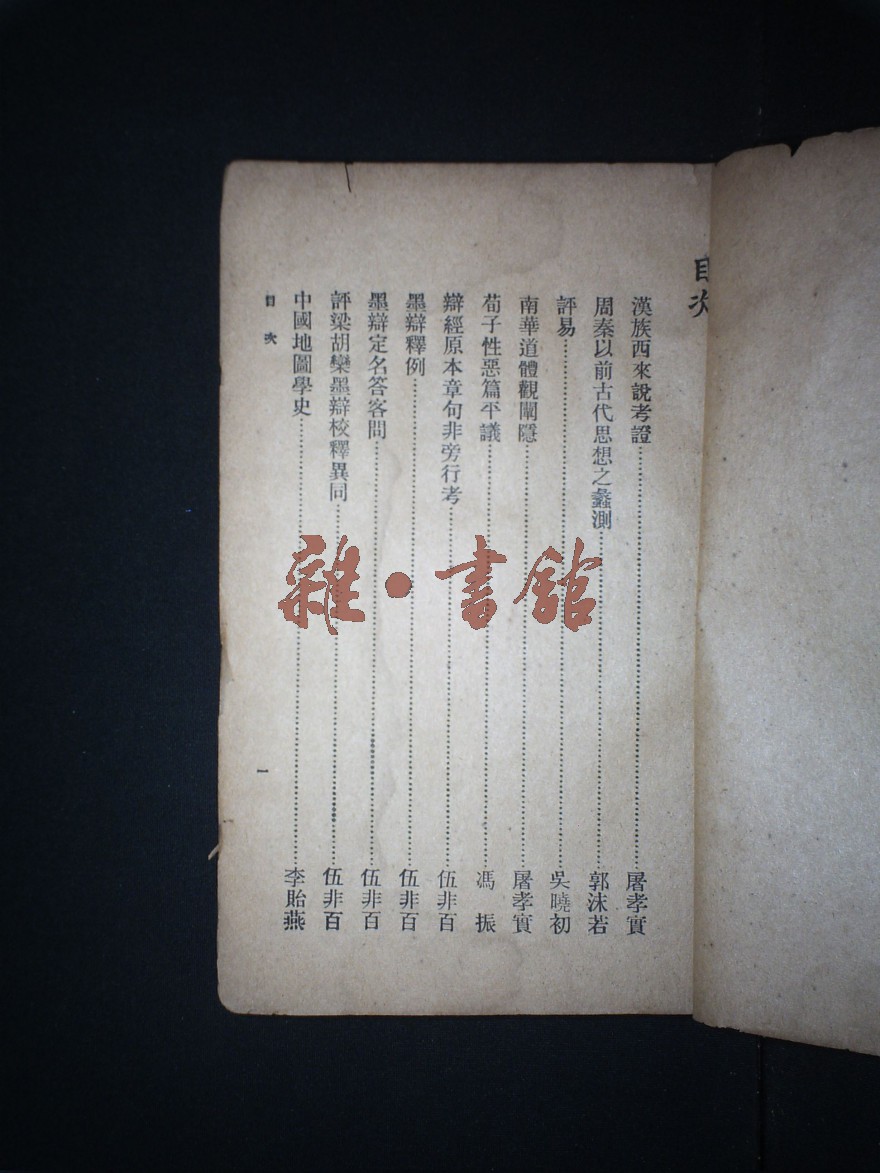 目次
漢族西來說考證……屠孝實
周秦以前古代思想之蠡測……郭沫若
評易……吳曉初
南華道體觀闡隱……屠孝實
荀子性惡篇平議……馮　振
辯經原本章句非旁行考……伍非百
墨辯釋例……伍非百
墨辯定名答客問……伍非百
評梁胡欒墨辯校釋異同……伍非百
中國地圖學史……李貽燕
目次
一
雜·書館